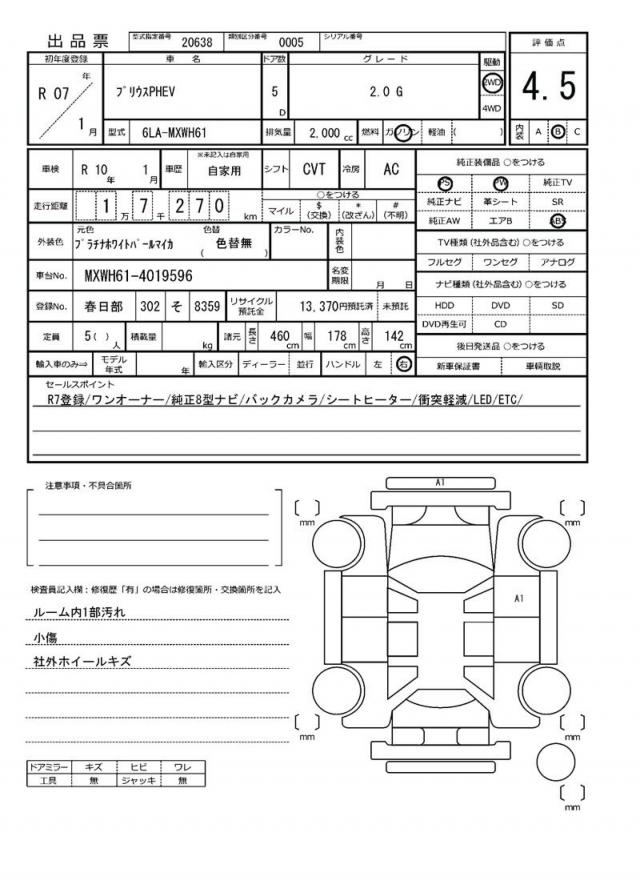 出品票 型式指定番号 20638 類別区分番号 0005 シリアル番号
初年度登録 車 名 ドア数 グレード 駆動 評価点
R 07 年 1 月 ﾌﾟﾘｳｽPHEV 5 D 2.0 G 2WD 4WD 4.5
型式 6LA-MXWH61 排気量 2,000 cc 燃料 ガソリン 軽油 ( ) 内装 A B C
車検 R 10 年 1 月 車歴 ※未記入は自家用 自家用 シフト CVT 冷房 AC 純正装備品 ○をつける
PS PW 純正TV
走行距離 1 万 7 千 2 7 0 km ○をつける 純正ナビ 革シート SR
マイル $ (交換) * (改ざん) # (不明) 純正AW エアB ABS
外装色 元色 ﾌﾟﾗﾁﾅﾎﾜｲﾄﾊﾟｰﾙﾏｲｶ 色替 ( 色替無 ) カラーNo. 内装色 TV種類 (社外品含む) ○をつける
フルセグ ワンセグ アナログ
車台No. MXWH61-4019596 名変期限 月 日 ナビ種類 (社外品含む) ○をつける
登録No. 春日部 302 そ 8359 リサイクル預託金 13,370円預託済 未預託 HDD DVD SD
DVD再生可 CD
定員 5 ( ) 人 積載量 kg 諸元 長さ 460 cm 幅 178 cm 高さ 142 cm 後日発送品 ○をつける
輸入車のみ⇒ モデル年式 年 輸入区分 ディーラー 並行 ハンドル 左 右 新車保証書 車輌取説
セールスポイント
R7登録/ワンオーナー/純正8型ナビ/バックカメラ/シートヒーター/衝突軽減/LED/ETC/
注意事項・不具合箇所
A1
mm mm
検査員記入欄：修復歴「有」の場合は修復箇所・交換箇所を記入
A1
ルーム内1部汚れ
小傷
社外ホイールキズ
mm mm
ドアミラー キズ ヒビ ワレ
工具 無 ジャッキ 無
mm